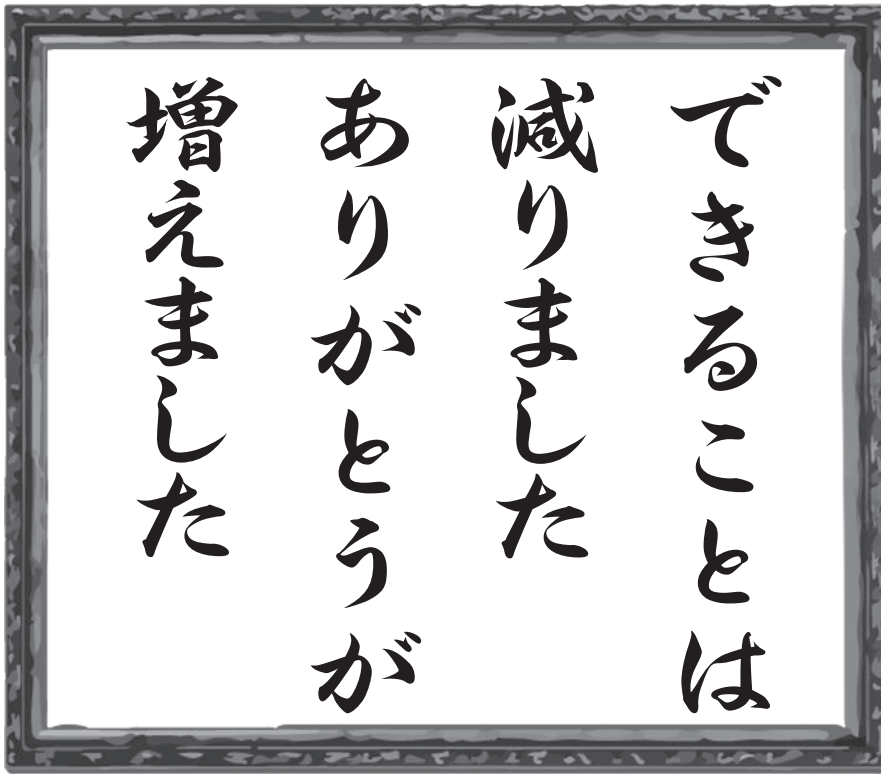 できることは
減りました
ありがとうが
増えました